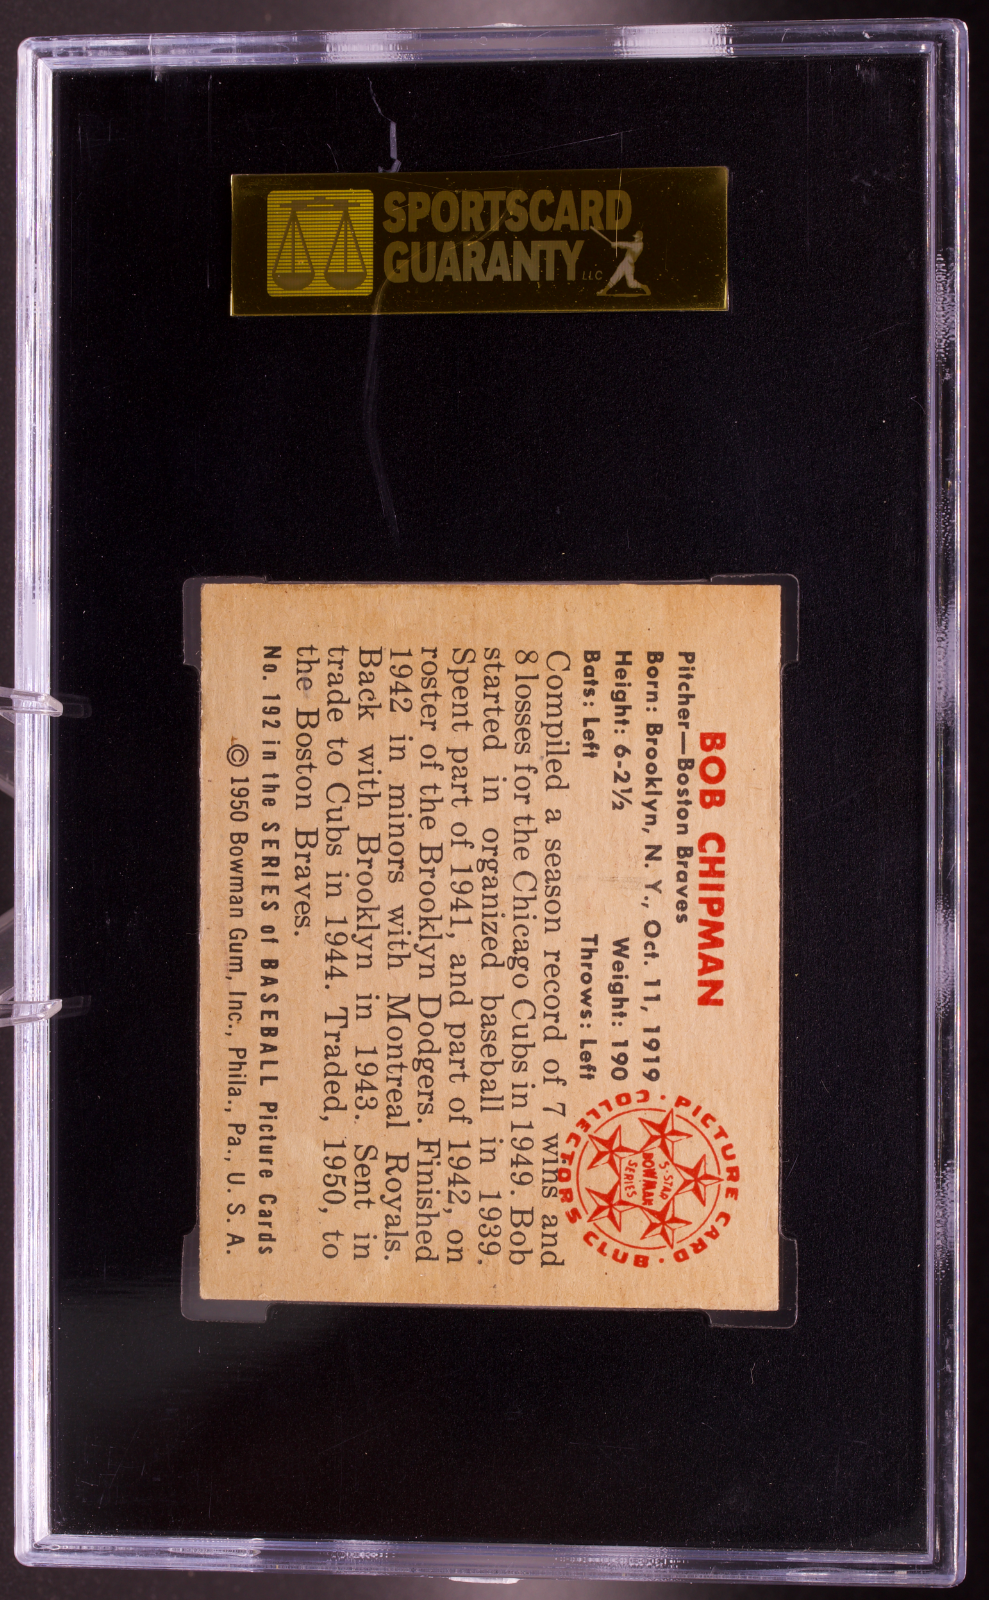 SPORTSCARD
GUARANTY LLC
BOB CHIPMAN
Pitcher—Boston Braves
Born: Brooklyn, N. Y., Oct. 11, 1919
Height: 6-2½ Weight: 190
Bats: Left Throws: Left
PICTURE CARD · COLLECTORS CLUB ·
5-STAR
BOWMAN
SERIES
Compiled a season record of 7 wins and
8 losses for the Chicago Cubs in 1949. Bob
started in organized baseball in 1939.
Spent part of 1941, and part of 1942, on
roster of the Brooklyn Dodgers. Finished
1942 in minors with Montreal Royals.
Back with Brooklyn in 1943. Sent in
trade to Cubs in 1944. Traded, 1950, to
the Boston Braves.
No. 192 in the SERIES of BASEBALL Picture Cards
© 1950 Bowman Gum, Inc., Phila., Pa., U. S. A.